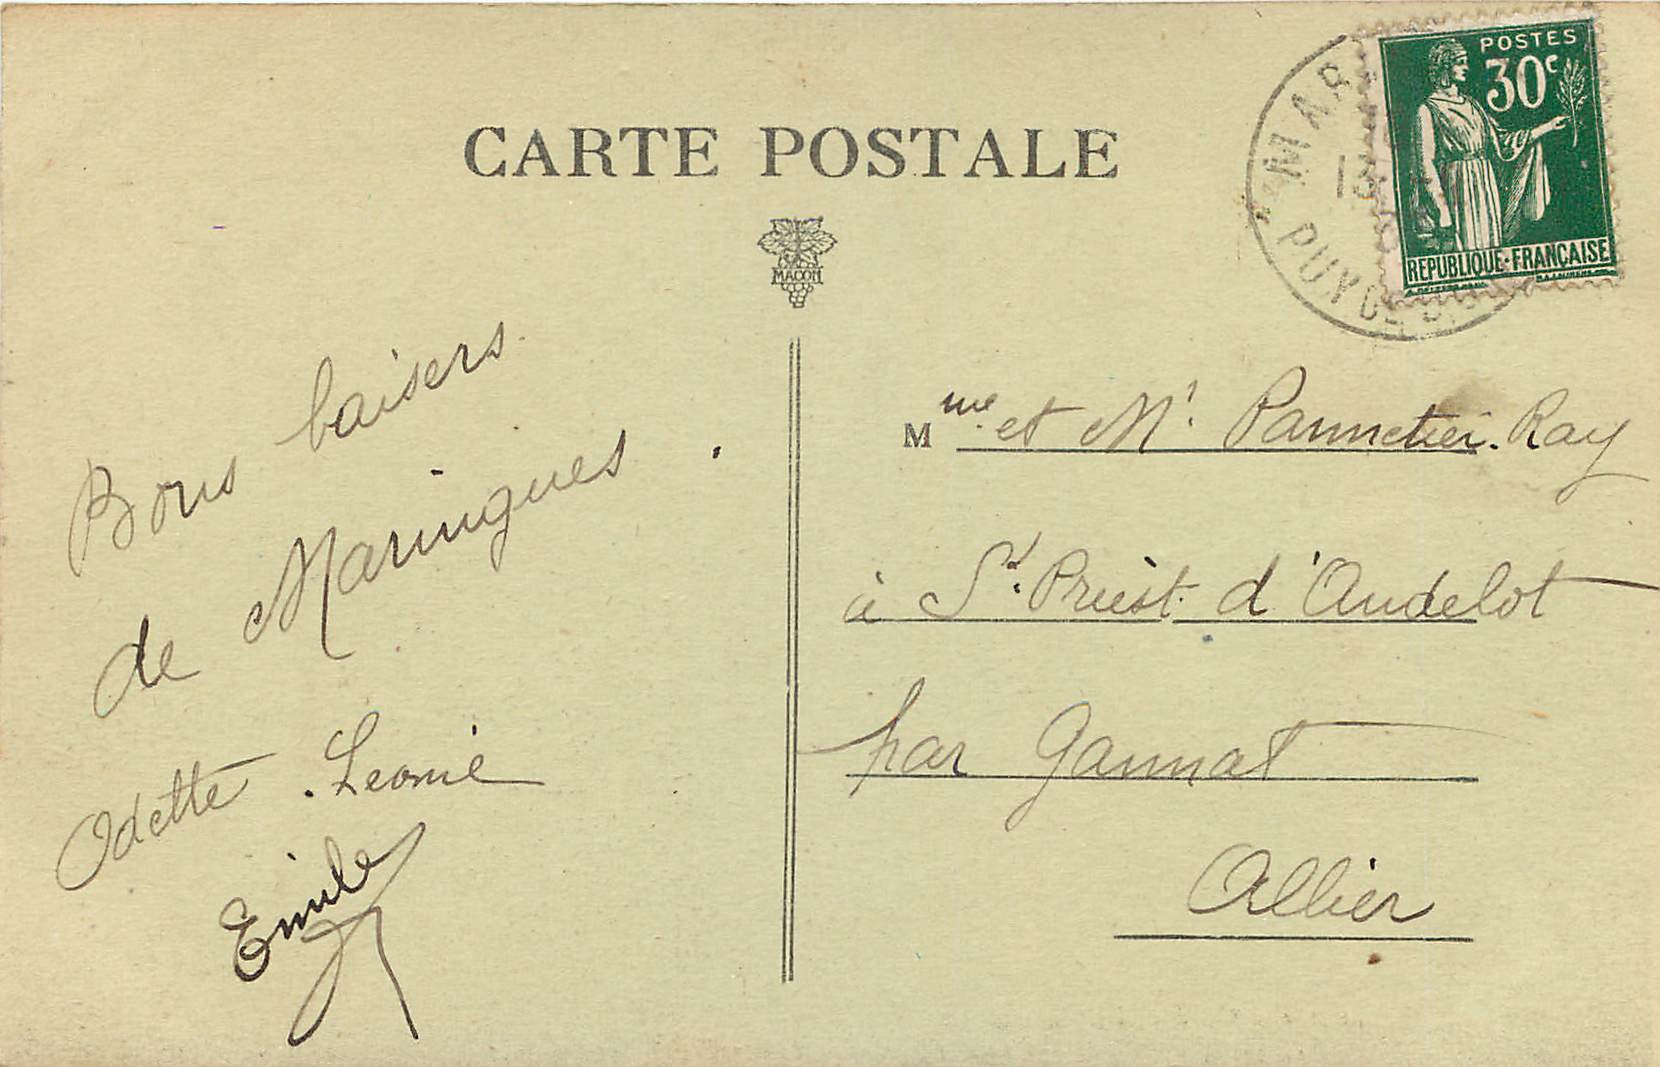 CARTE POSTALE
MACON
POSTES
30c
REPUBLIQUE·FRANÇAISE
MAR
PUY DE D
Bons baisers
de Maringues.
Odette. Leonie
Emile
Mme et Mr Pannetier. Ray
à St. Priest. d'Andelot
par Gannat
Allier